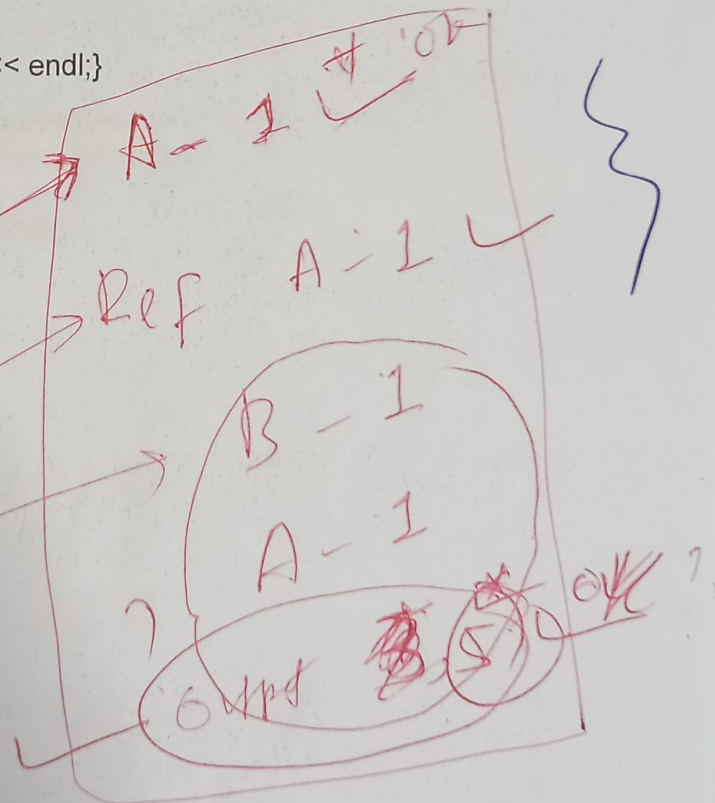 < endl;}
A - 1 ok
Ref A - 1
B - 1
A - 1
Output 5 ok ?